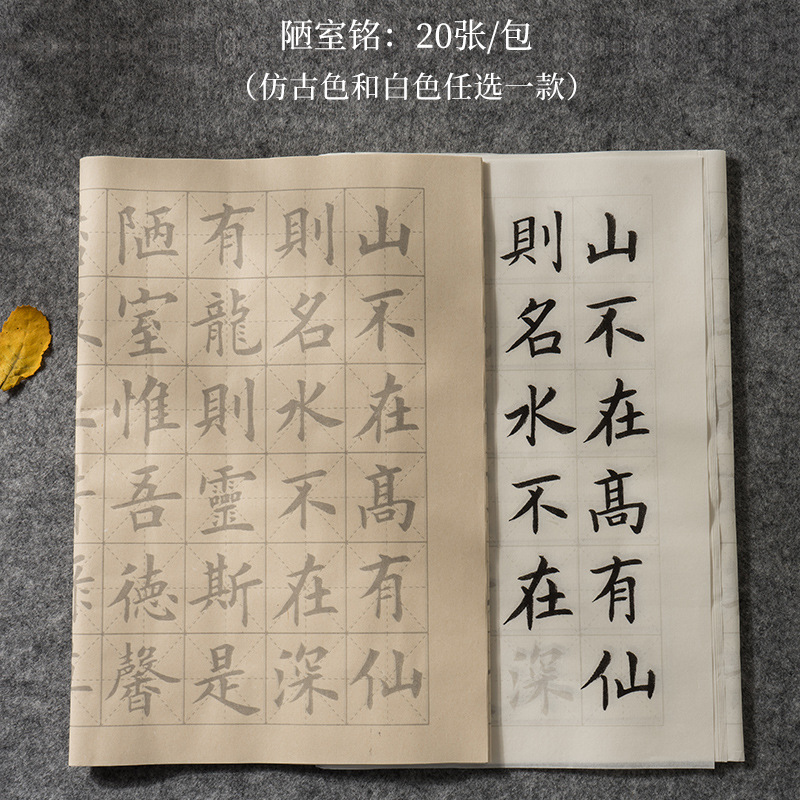 陋室铭：20张/包
（仿古色和白色任选一款）
山不在髙有仙
則名水不在深
有龍則靈斯是
陋室惟吾德馨
山不在髙有仙
則名水不在深